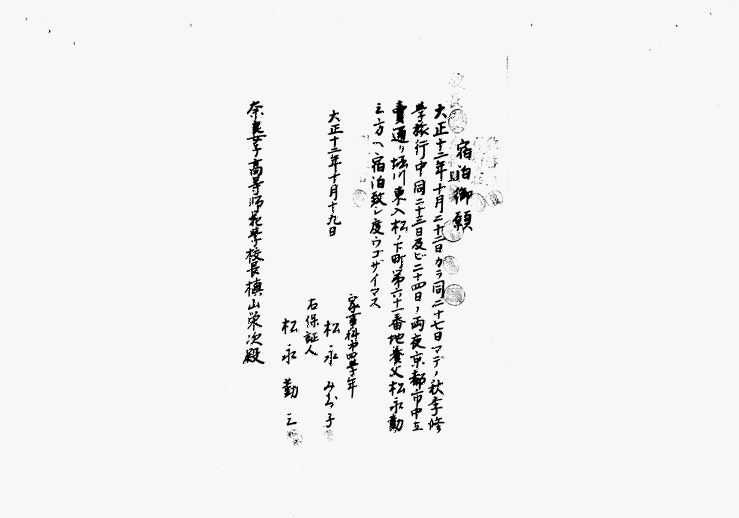 宿泊御願
大正十二年十月二十二日カラ同二十七日マデノ秋季修
学旅行中同二十三日及ビ二十四日ノ両夜京都市中立
賣通リ堀川東入松ノ下町第六十一番地養父松永勤
三方ヘ宿泊致シ度ウゴザイマス
大正十二年十月十九日
家事科第四学年
松永みお子
右保証人
松永勤三
奈良女子高等師範学校長槇山栄次殿